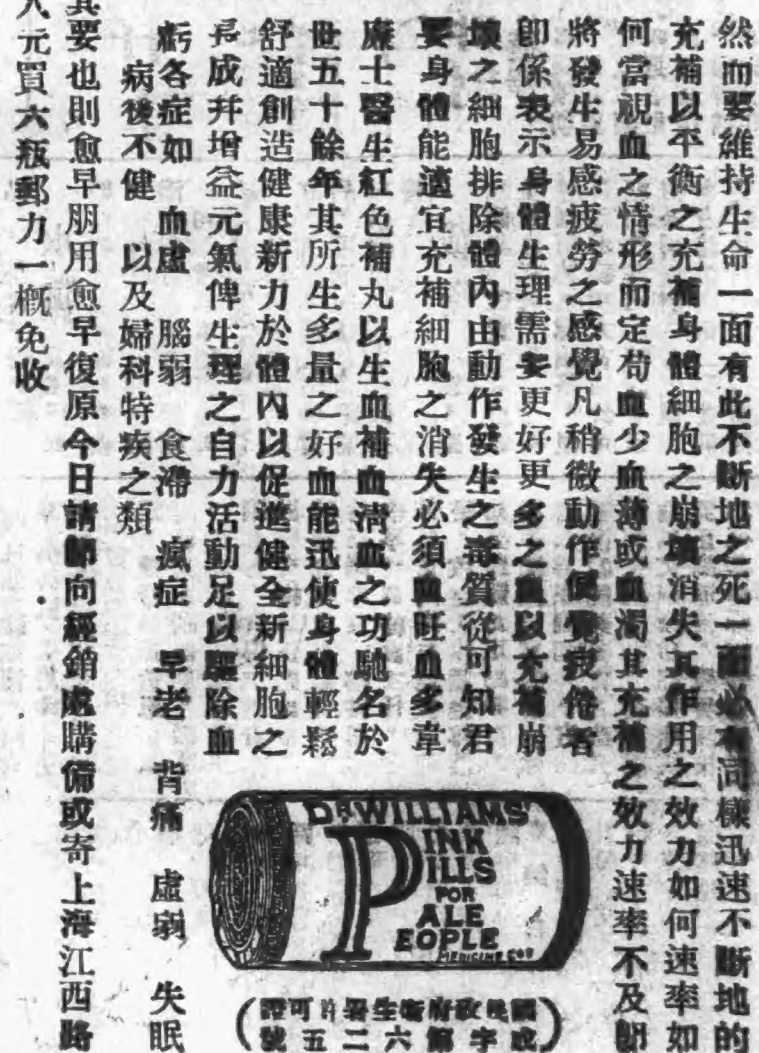 然而要維持生命一面有此不斷地之死一面必有同樣迅速不斷地的
充補以平衡之充補身體細胞之崩壞消失其作用之效力如何速率如
何當視血之情形而定苟血少血薄或血濁其充補之效力速率不及卽
將發生易感疲勞之感覺凡稍微動作便覺疲倦者
卽係表示身體生理需要更好更多之血以充補崩
壞之細胞排除體內由動作發生之毒質從可知君
要身體能適宜充補細胞之消失必須血旺血多韋
廉士醫生紅色補丸以生血補血清血之功馳名於
世五十餘年其所生多量之好血能迅使身體輕鬆
舒適創造健康新力於體內以促進健全新細胞之
長成幷增益元氣俾生理之自力活動足以驅除血
虧各症如 血虛 腦弱 食滯 瘋症 早老 背痛 虛弱 失眠
病後不健 以及婦科特疾之類
其要也則愈早朋用愈早復原今日請卽向經銷處購備或寄上海江西路
八元買六瓶郵力一槪免收
DR WILLIAMS'
PINK
PILLS
FOR
PALE
PEOPLE
MEDICINE Co
(國民政府衛生署許可證
成字第六二五號)